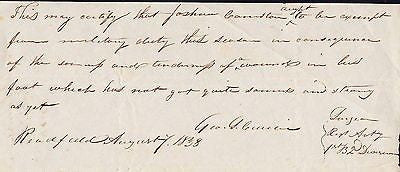 This may certify that Joshua ought to be exempt
from military duty this season in consequence
of the soreness and tenderness of a wound in his
foot which has not got quite sound and strong
as yet
Geo. S.
Readfield August 7, 1838
Surgeon
Regt Arty
1st B 2 Division